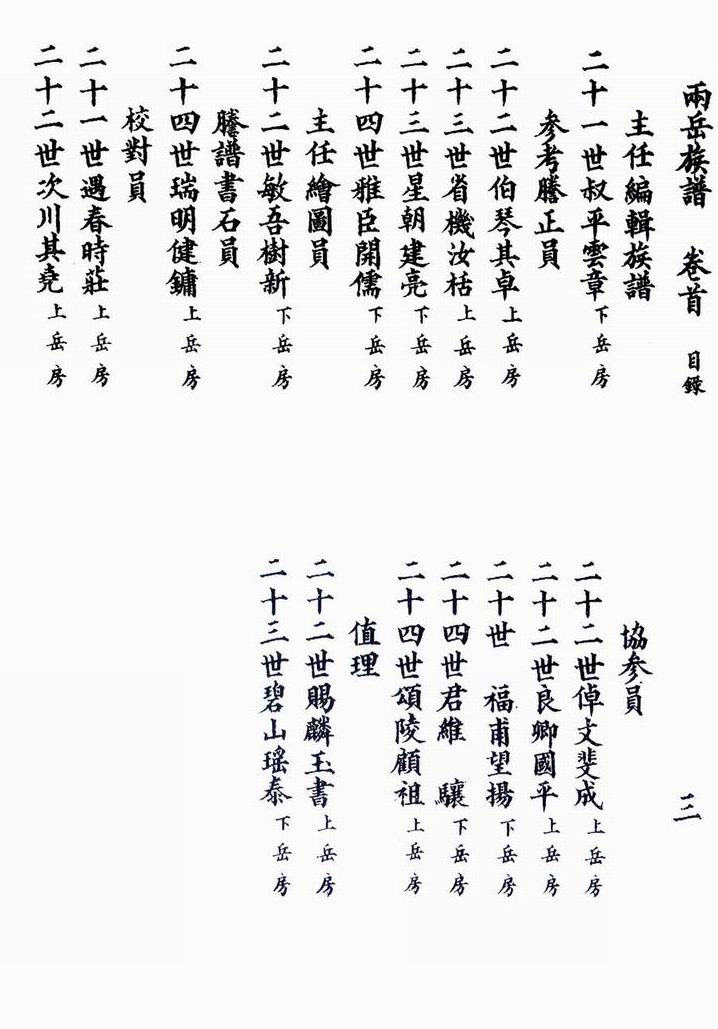 兩岳族譜 卷首 目錄
三
主任編輯族譜
二十一世叔平雲章下岳房
參考謄正員
二十二世伯琴其卓上岳房
二十三世省機汝栝上岳房
二十三世星朝建亮下岳房
二十四世雅臣開儒下岳房
主任繪圖員
二十二世敏吾樹新下岳房
謄譜書石員
二十四世瑞明健鏞上岳房
校對員
二十一世遇春時莊上岳房
二十二世次川其堯上岳房
協參員
二十二世倬文斐成上岳房
二十二世良卿國平上岳房
二十世 福甫望揚下岳房
二十四世君維 驤下岳房
二十四世頌陵顧祖上岳房
值理
二十二世賜麟玉書上岳房
二十三世碧山瑶泰下岳房